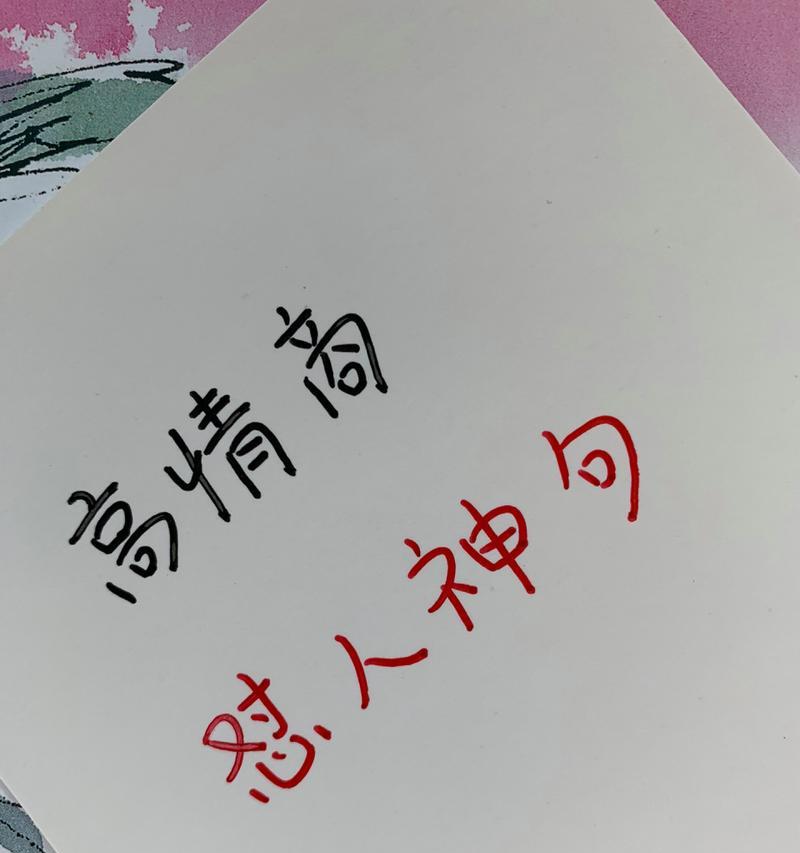 高情商
怼人神句